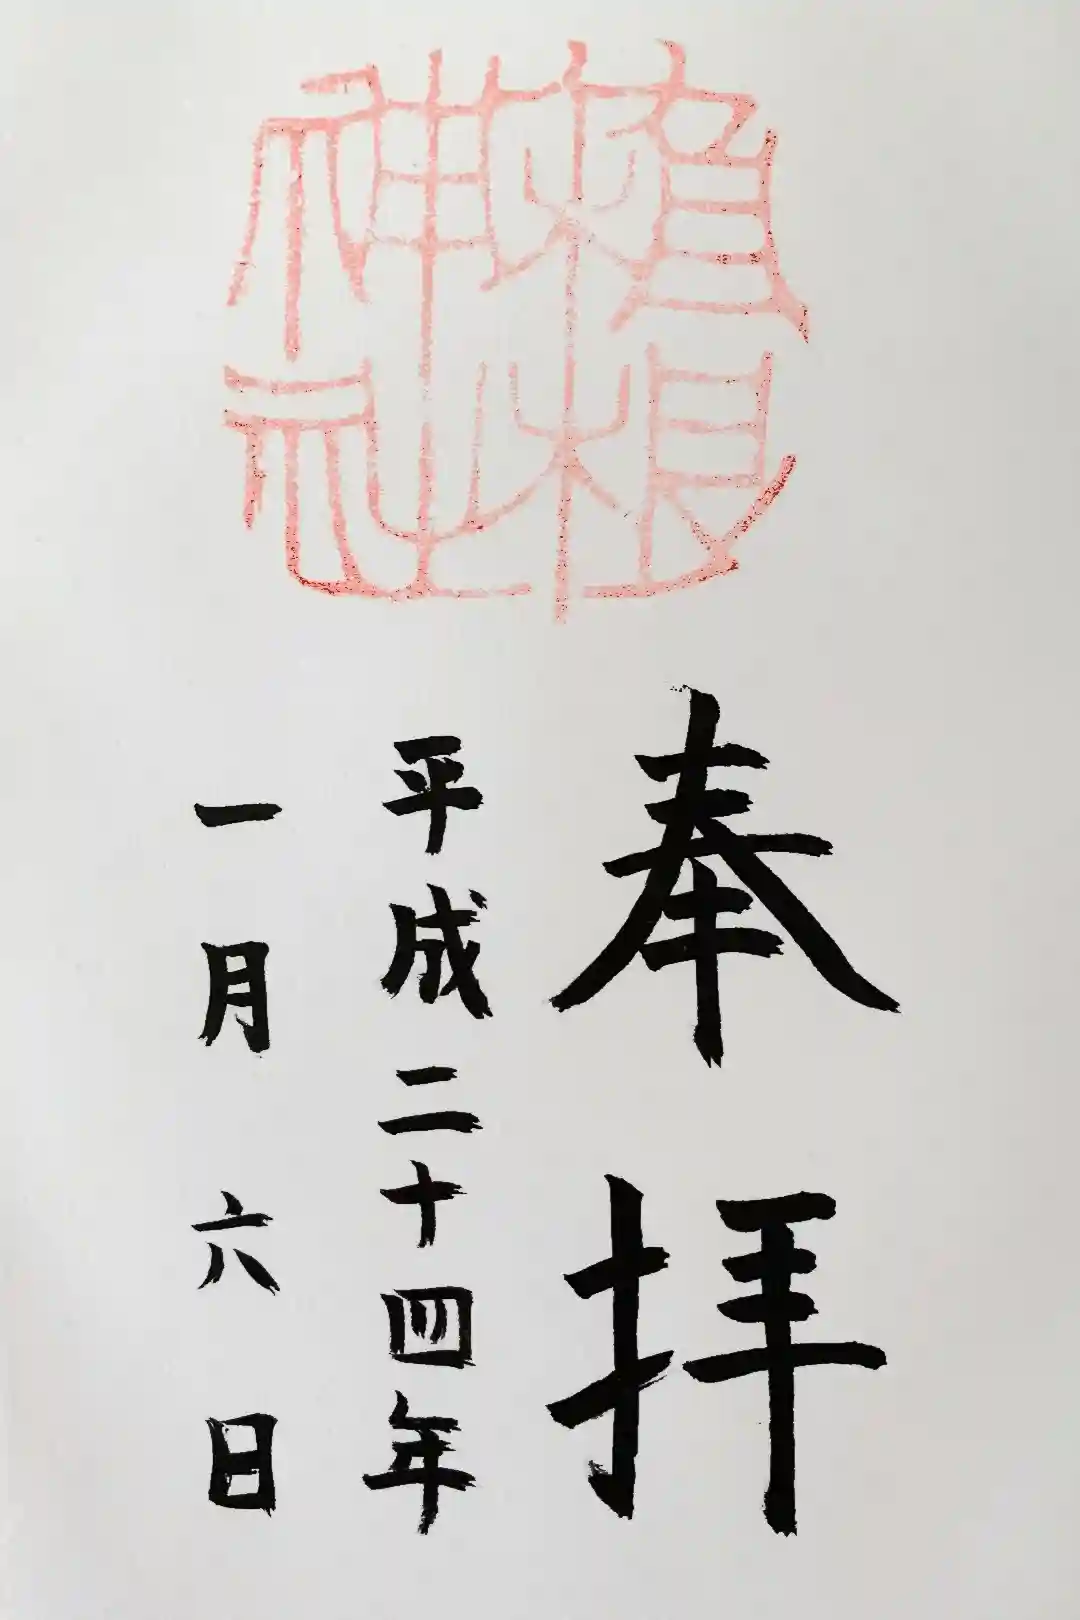 箱根
神社
奉拝
平成二十四年
一月六日